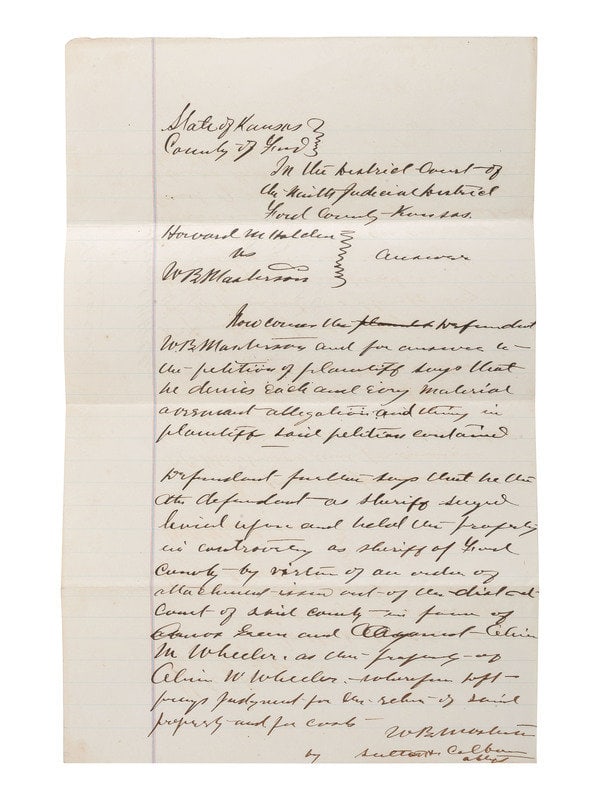 State of Kansas
County of Ford
In the District Court of
the Ninth Judicial District
Ford County Kansas
Howard M Holden
vs
Answer
W B Masterson
Now comes the Defendant
W B Masterson and for answer to
the petition of plaintiff says that
he denies each and every material
averment allegation and thing in
plaintiff said petition contained
Defendant further says that he the
the defendant as sheriff seized
levied upon and held the property
in controversy as sheriff of Ford
County by virtue of an order of
attachment issued out of the district
court of said county in favor of
Green and against Alvin
M Wheeler as the property of
Alvin W Wheeler wherefore deft
prays judgment for the return of said
property and for costs
W B Masterson
by Sutton & Colborn
attys